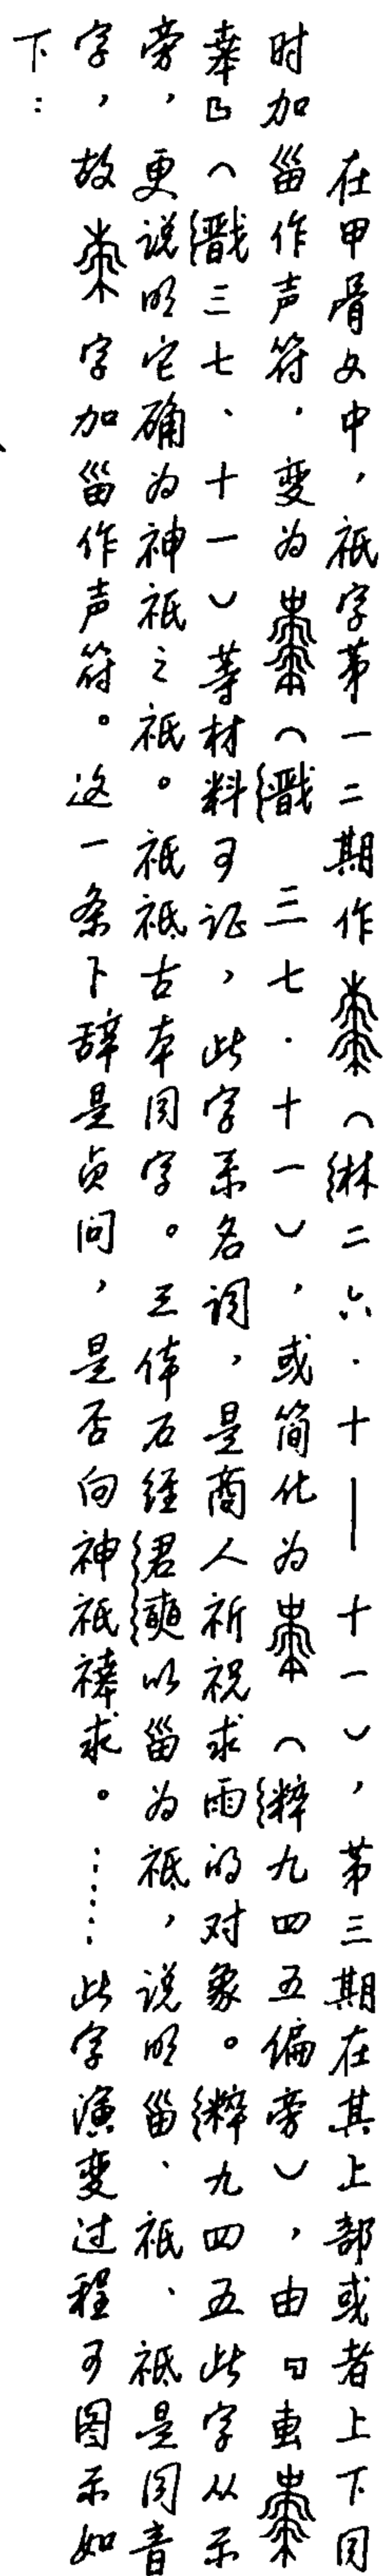 在甲骨文中，祗字第一二期作（𬗋二六．十——十一），第三期在其上部或者上下同
时加甾作声符．变为（戬三七．十一），或简化为（粹九四五偏旁），由「叀
𠦪」（戬三七、十一）等材料可证，此字系名词，是商人祈祝求雨的对象。粹九四五此字从示
旁，更说明它确为神祗之祗。祗祇古本同字。三体石经君奭以甾为祗，说明甾、祗、祇是同音
字，故字加甾作声符。这一条卜辞是贞问，是否向神祗祓求。……此字演变过程可图示如
下：